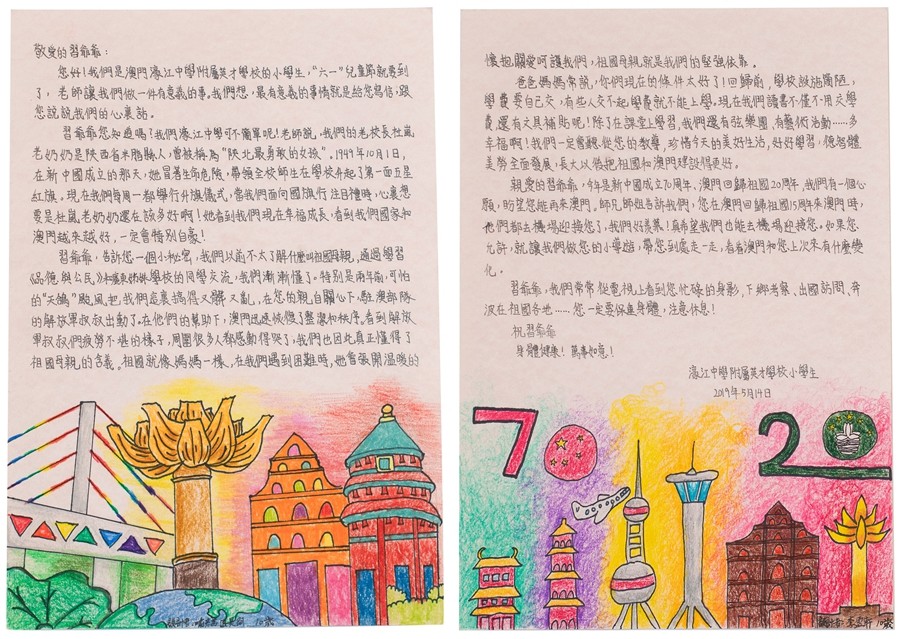 敬愛的習爺爺：
您好！我們是澳門濠江中學附屬英才學校的小學生，“六一”兒童節就要到
了，老師讓我們做一件有意義的事。我們想，最有意義的事情就是給您寫信，跟
您說說我們的心裏話。
習爺爺您知道嗎！我們濠江中學可不簡單呢！老師說，我們的老校長杜嵐
老奶奶是陝西省米脂縣人，曾被稱為“陝北最勇敢的女孩”。1949年10月1日，
在新中國成立的那天，她冒著生命危險，帶領全校師生在學校升起了第一面五星
紅旗。現在我們每周一都舉行升旗儀式，當我們面向國旗行注目禮時，心裏想
要是杜嵐老奶奶還在該多好啊！她看到我們現在幸福成長，看到我們國家和
澳門越來越好，一定會特別自豪！
習爺爺，告訴您一個小秘密，我們以前不太了解什麼叫祖國母親，通過學習
《品德與公民》學校的同學交流，我們漸漸懂了。特別是兩年前，可怕
的“天鴿”颱風把我們這裏搞得又髒又亂，在您的親自關心下，駐澳部隊
的解放軍叔叔出動了。在他們的幫助下，澳門迅速恢復了整潔和秩序。看到解放
軍叔叔們疲勞不堪的樣子，周圍很多人都感動得哭了，我們也因此真正懂得了
祖國母親的含義。祖國就像媽媽一樣，在我們遇到困難時，她會張開溫暖的
懷抱，關愛呵護我們，祖國母親就是我們的堅強依靠。
爸爸媽媽常說，你們現在的條件太好了！回歸前，學校設施簡陋，
學費要自己交，有些人交不起學費就不能上學。現在我們讀書不僅不用交學
費，還有文具補貼呢！除了在課堂上學習，我們還有弦樂團，有藝術活動……多
幸福啊！我們一定會聽從您的教導，珍惜今天的美好生活，好好學習，德智體
美勞全面發展，長大以後把祖國和澳門建設得更好。
親愛的習爺爺，今年是新中國成立70周年、澳門回歸祖國20周年，我們有一個心
願，盼望您能再來澳門。師兄師姐告訴我們，您在澳門回歸祖國15周年來澳門時，
他們都去機場迎接您了，我們好羨慕！真希望我們也能去機場迎接您。如果您
允許，就讓我們做您的小導遊，帶您到處走一走，看看澳門和您上次來有什麼變
化。
習爺爺，我們常常從電視上看到您忙碌的身影，下鄉考察、出國訪問、奔
波在祖國各地……您一定要保重身體，注意休息！
祝習爺爺
身體健康！萬事如意！
濠江中學附屬英才學校小學生
2019年5月14日
70
20
10歲
10歲